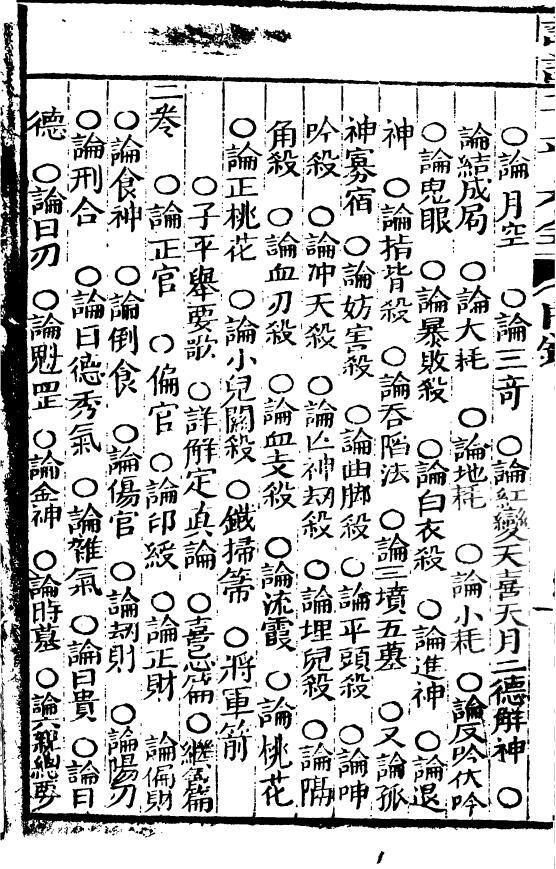 ○論月空　○論三竒　○論紅鸞天喜天月二德解神　○
論結成局　○論大耗　○論地耗　○論小耗　○論反吟伏吟
○論鬼眼　○論暴敗殺　○論白衣殺　○論進神　○論退
神　○論指背殺　○論吞陷法　○論三墳五墓　○又論孤
神寡宿　○論妨害殺　○論曲脚殺　○論平頭殺　○論呻
吟殺　○論冲天殺　○論亡神刼殺　○論埋兒殺　○論隔
角殺　○論血刃殺　○論血支殺　○論流霞　○論桃花
○論正桃花　○論小兒關殺　○鐵掃箒　○將軍箭
○子平舉要歌　○詳解定真論　○喜忌篇　○繼善篇
二卷　○論正官　○偏官　○論印綬　○論正財　論偏財
○論食神　○論倒食　○論傷官　○論刼財　○論陽刃
○論刑合　○論日德秀氣　○論雜氣　○論日貴　○論日
德　○論日刃　○論魁罡　○論金神　○論時墓　○論六親總要